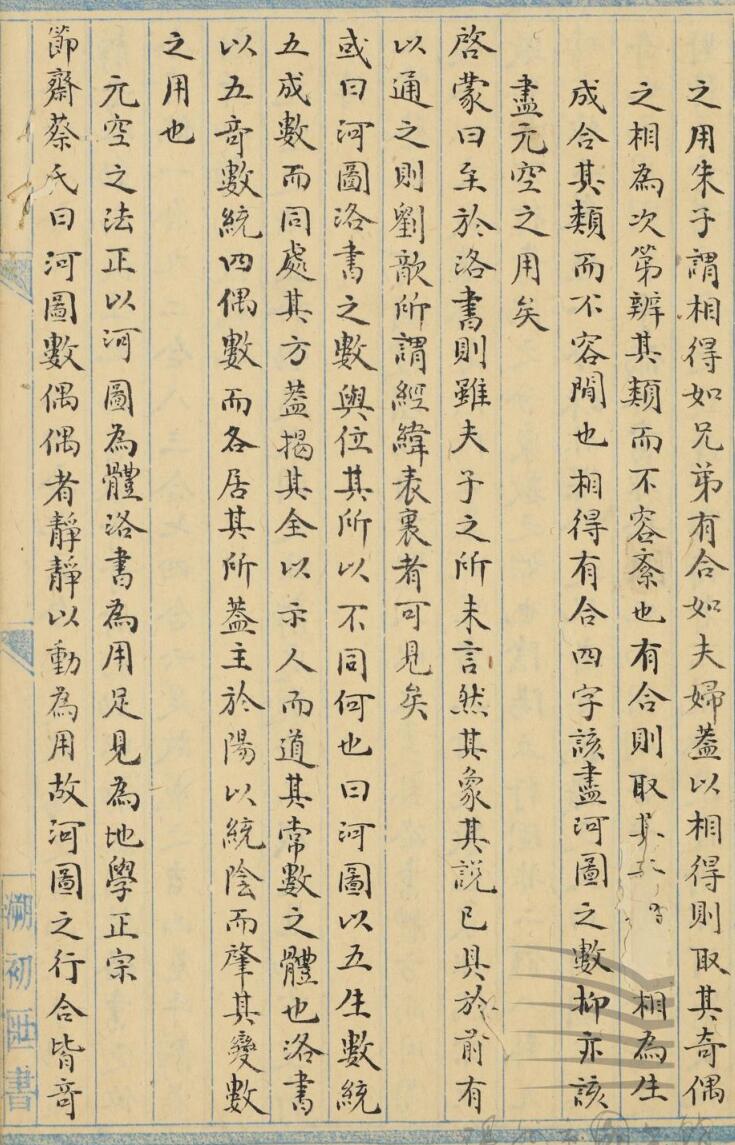 之用朱子謂相得如兄弟有合如夫婦葢以相得則取其奇偶
之相為次第辨其類而不容紊也有合則取其相為生
成合其類而不容間也相得有合四字該盡河圖之數抑亦該
盡元空之用矣
啓蒙曰至於洛書則雖夫子之所未言然其象其説已具於前有
以通之則劉歆所謂經緯表裏者可見矣
或曰河圖洛書之數與位其所以不同何也曰河圖以五生數統
五成數而同處其方葢揭其全以示人而道其常數之體也洛書
以五奇數統四偶數而各居其所葢主於陽以統陰而肇其變數
之用也
元空之法正以河圖為體洛書為用足見為地學正宗
節齋蔡氏曰河圖數偶偶者靜靜以動為用故河圖之行合皆奇